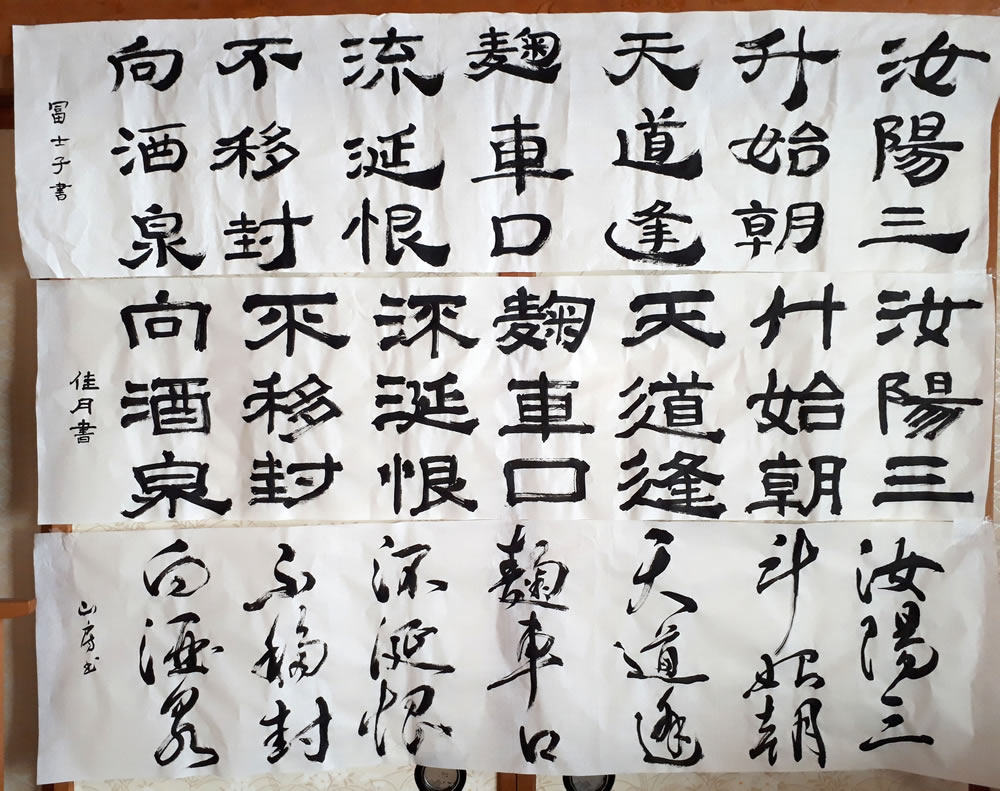 汝陽三
升始朝
天道逢
麹車口
流涎恨
不移封
向酒泉
冨士子書
汝陽三
斗始朝
天道逢
麹車口
流涎恨
不移封
向酒泉
佳月書
汝陽三
斗始朝
天道逢
麹車口
流涎恨
不移封
向酒泉